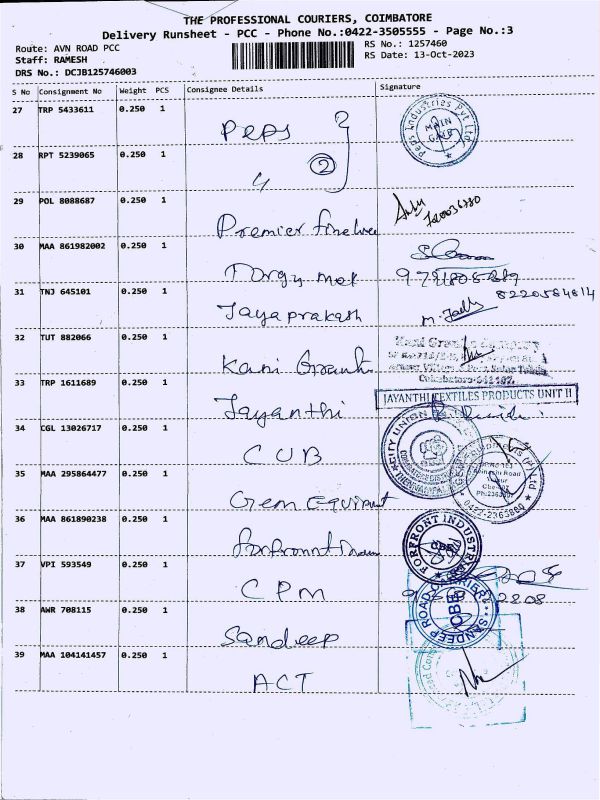 THE PROFESSIONAL COURIERS, COIMBATORE
Delivery Runsheet - PCC - Phone No.:0422-3505555 - Page No.:3
Route: AVN ROAD PCC
RS No.: 1257460
Staff: RAMESH
RS Date: 13-Oct-2023
DRS No.: DCJB125746003
S No Consignment No Weight PCS Consignee Details Signature
27 TRP 5433611 0.250 1 Peps
Peps Industries Pvt Ltd
MAIN GATE
28 RPT 5239065 0.250 1 4 2
29 POL 8088687 0.250 1 Premier
30 MAA 861982002 0.250 1
31 TNJ 645101 0.250 1 Jayaprakash
8220584814
32 TUT 882066 0.250 1 Kani
Kani
33 TRP 1611689 0.250 1 Jayanthi
JAYANTHI TEXTILES PRODUCTS UNIT II
34 CGL 13026717 0.250 1 CUB
CITY UNION
35 MAA 295864477 0.250 1 Gem Equipment
0422-2363800
36 MAA 861890238 0.250 1
FORFRONT
CBE
37 VPI 593549 0.250 1 CPM
38 AWR 708115 0.250 1 Sandeep
SANDEEP ROAD CARRIERS
CBE
39 MAA 104141457 0.250 1 ACT